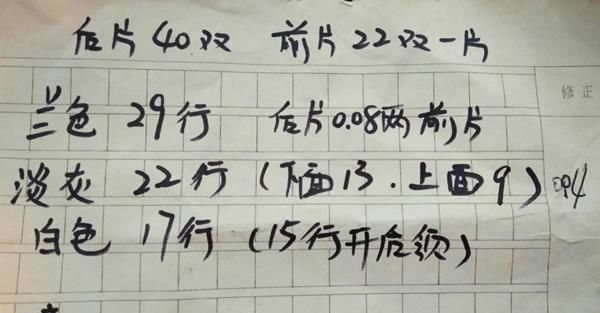 后片40双 前片22双一片
修正
兰色 29行 后片0.08两前片
淡灰 22行(下面13.上面9)
白色 17行(15行开后领)